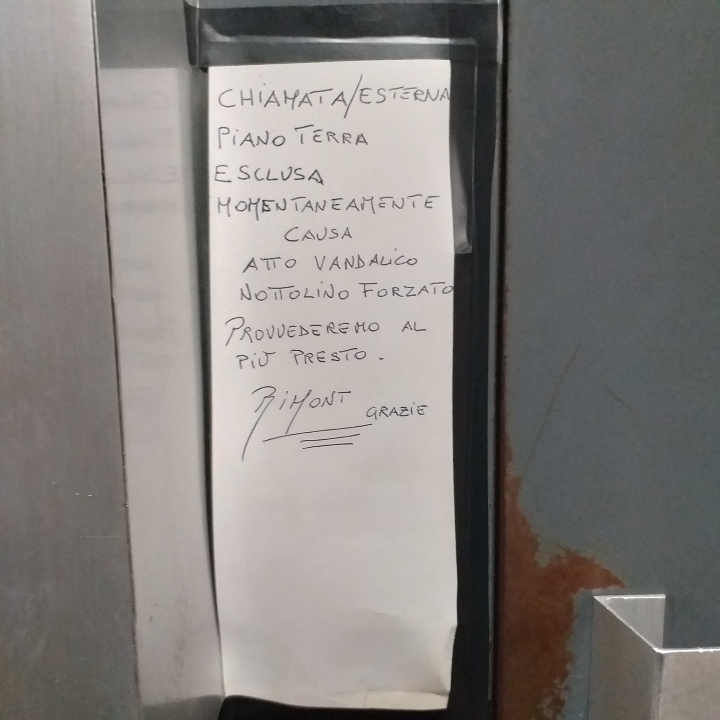 CHIAMATA/ESTERNA
PIANO TERRA
ESCLUSA
MOMENTANEAMENTE
CAUSA
ATTO VANDALICO
NOTTOLINO FORZATO
PROVVEDEREMO AL
PIÙ PRESTO.
RIMONT GRAZIE